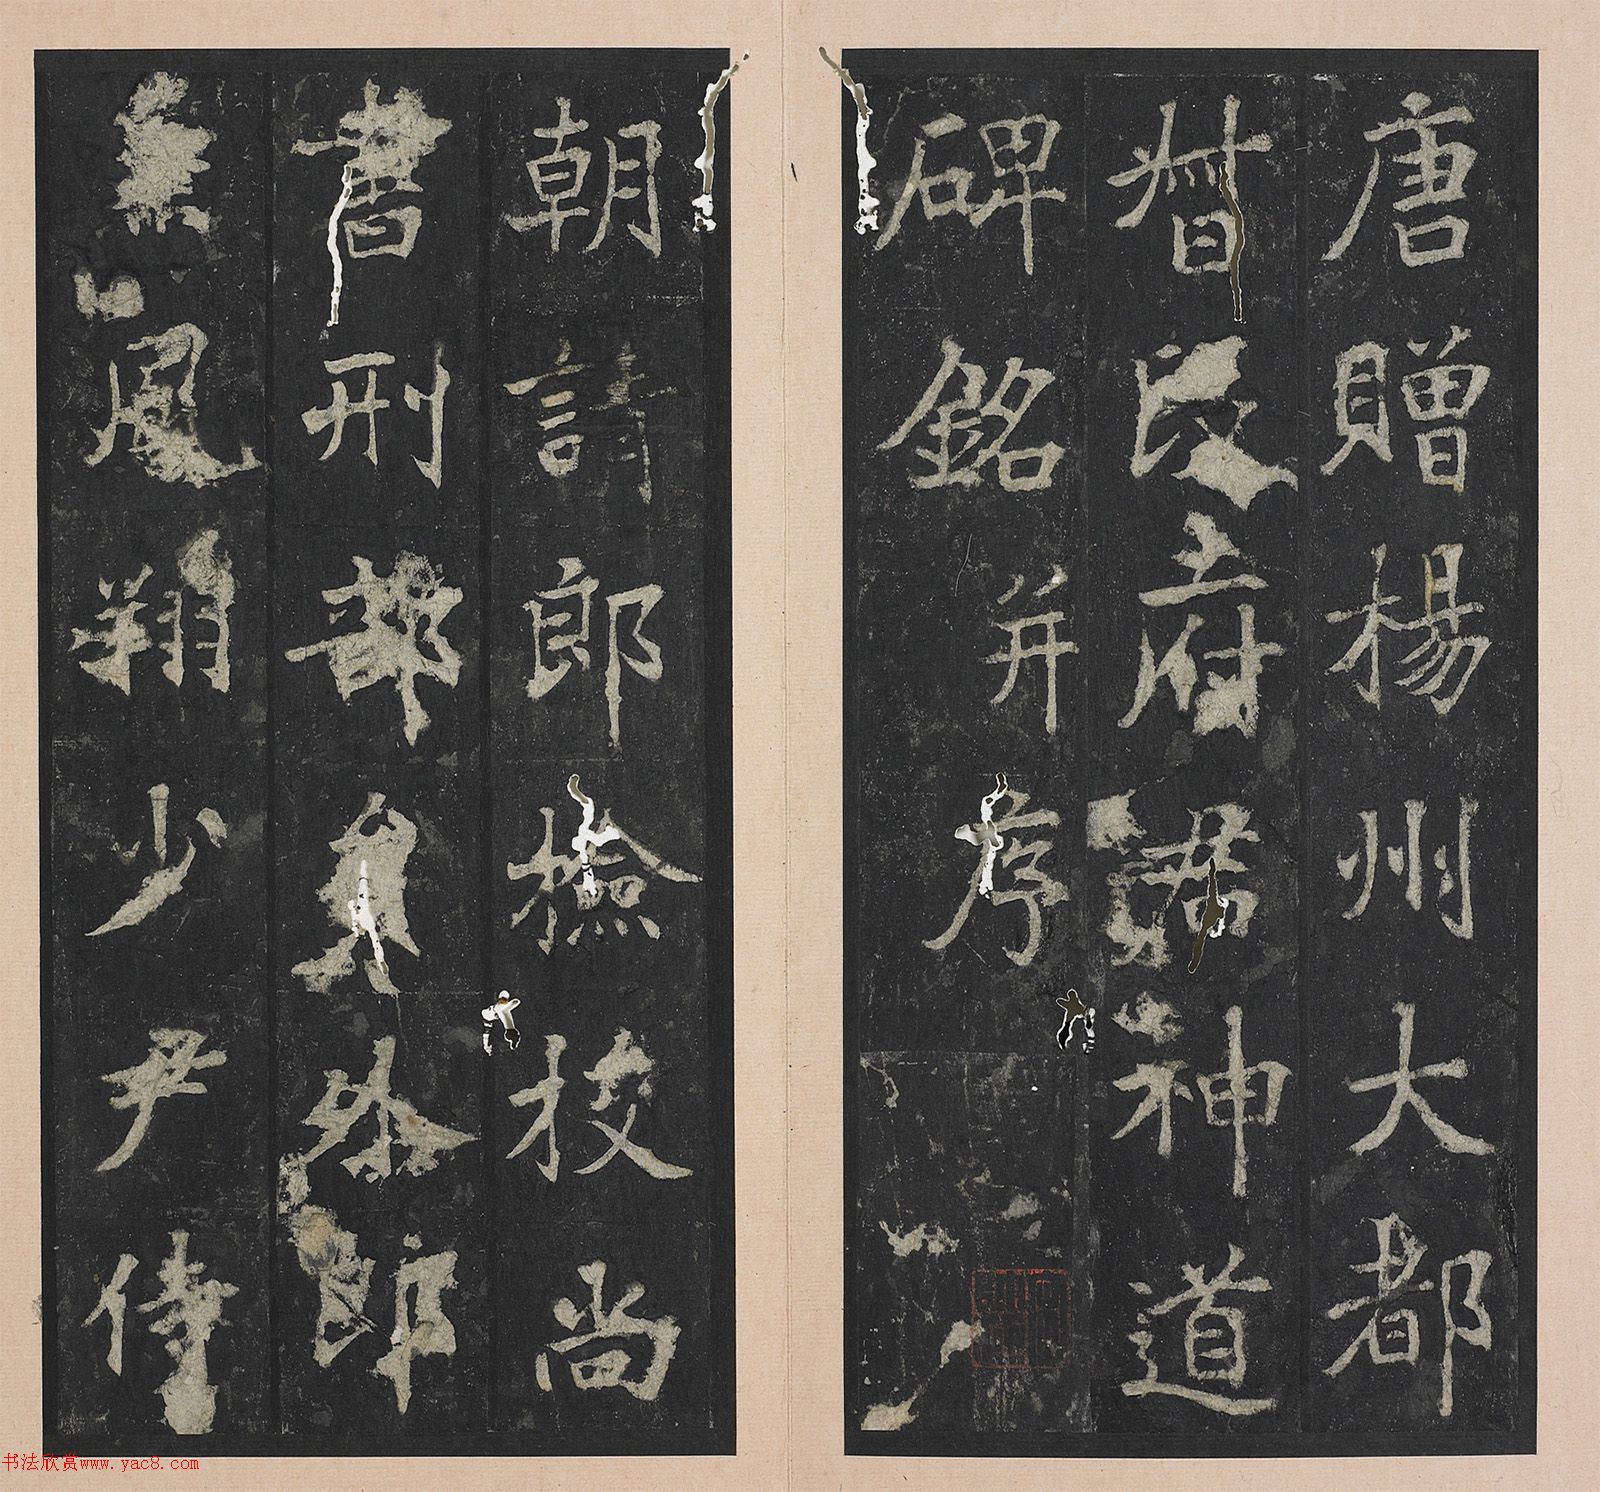 唐贈楊州大都
督段府君神道
碑銘并序
朝請郎檢校尚
書刑部員外郎
兼鳳翔少尹侍
书法欣赏www.yac8.com